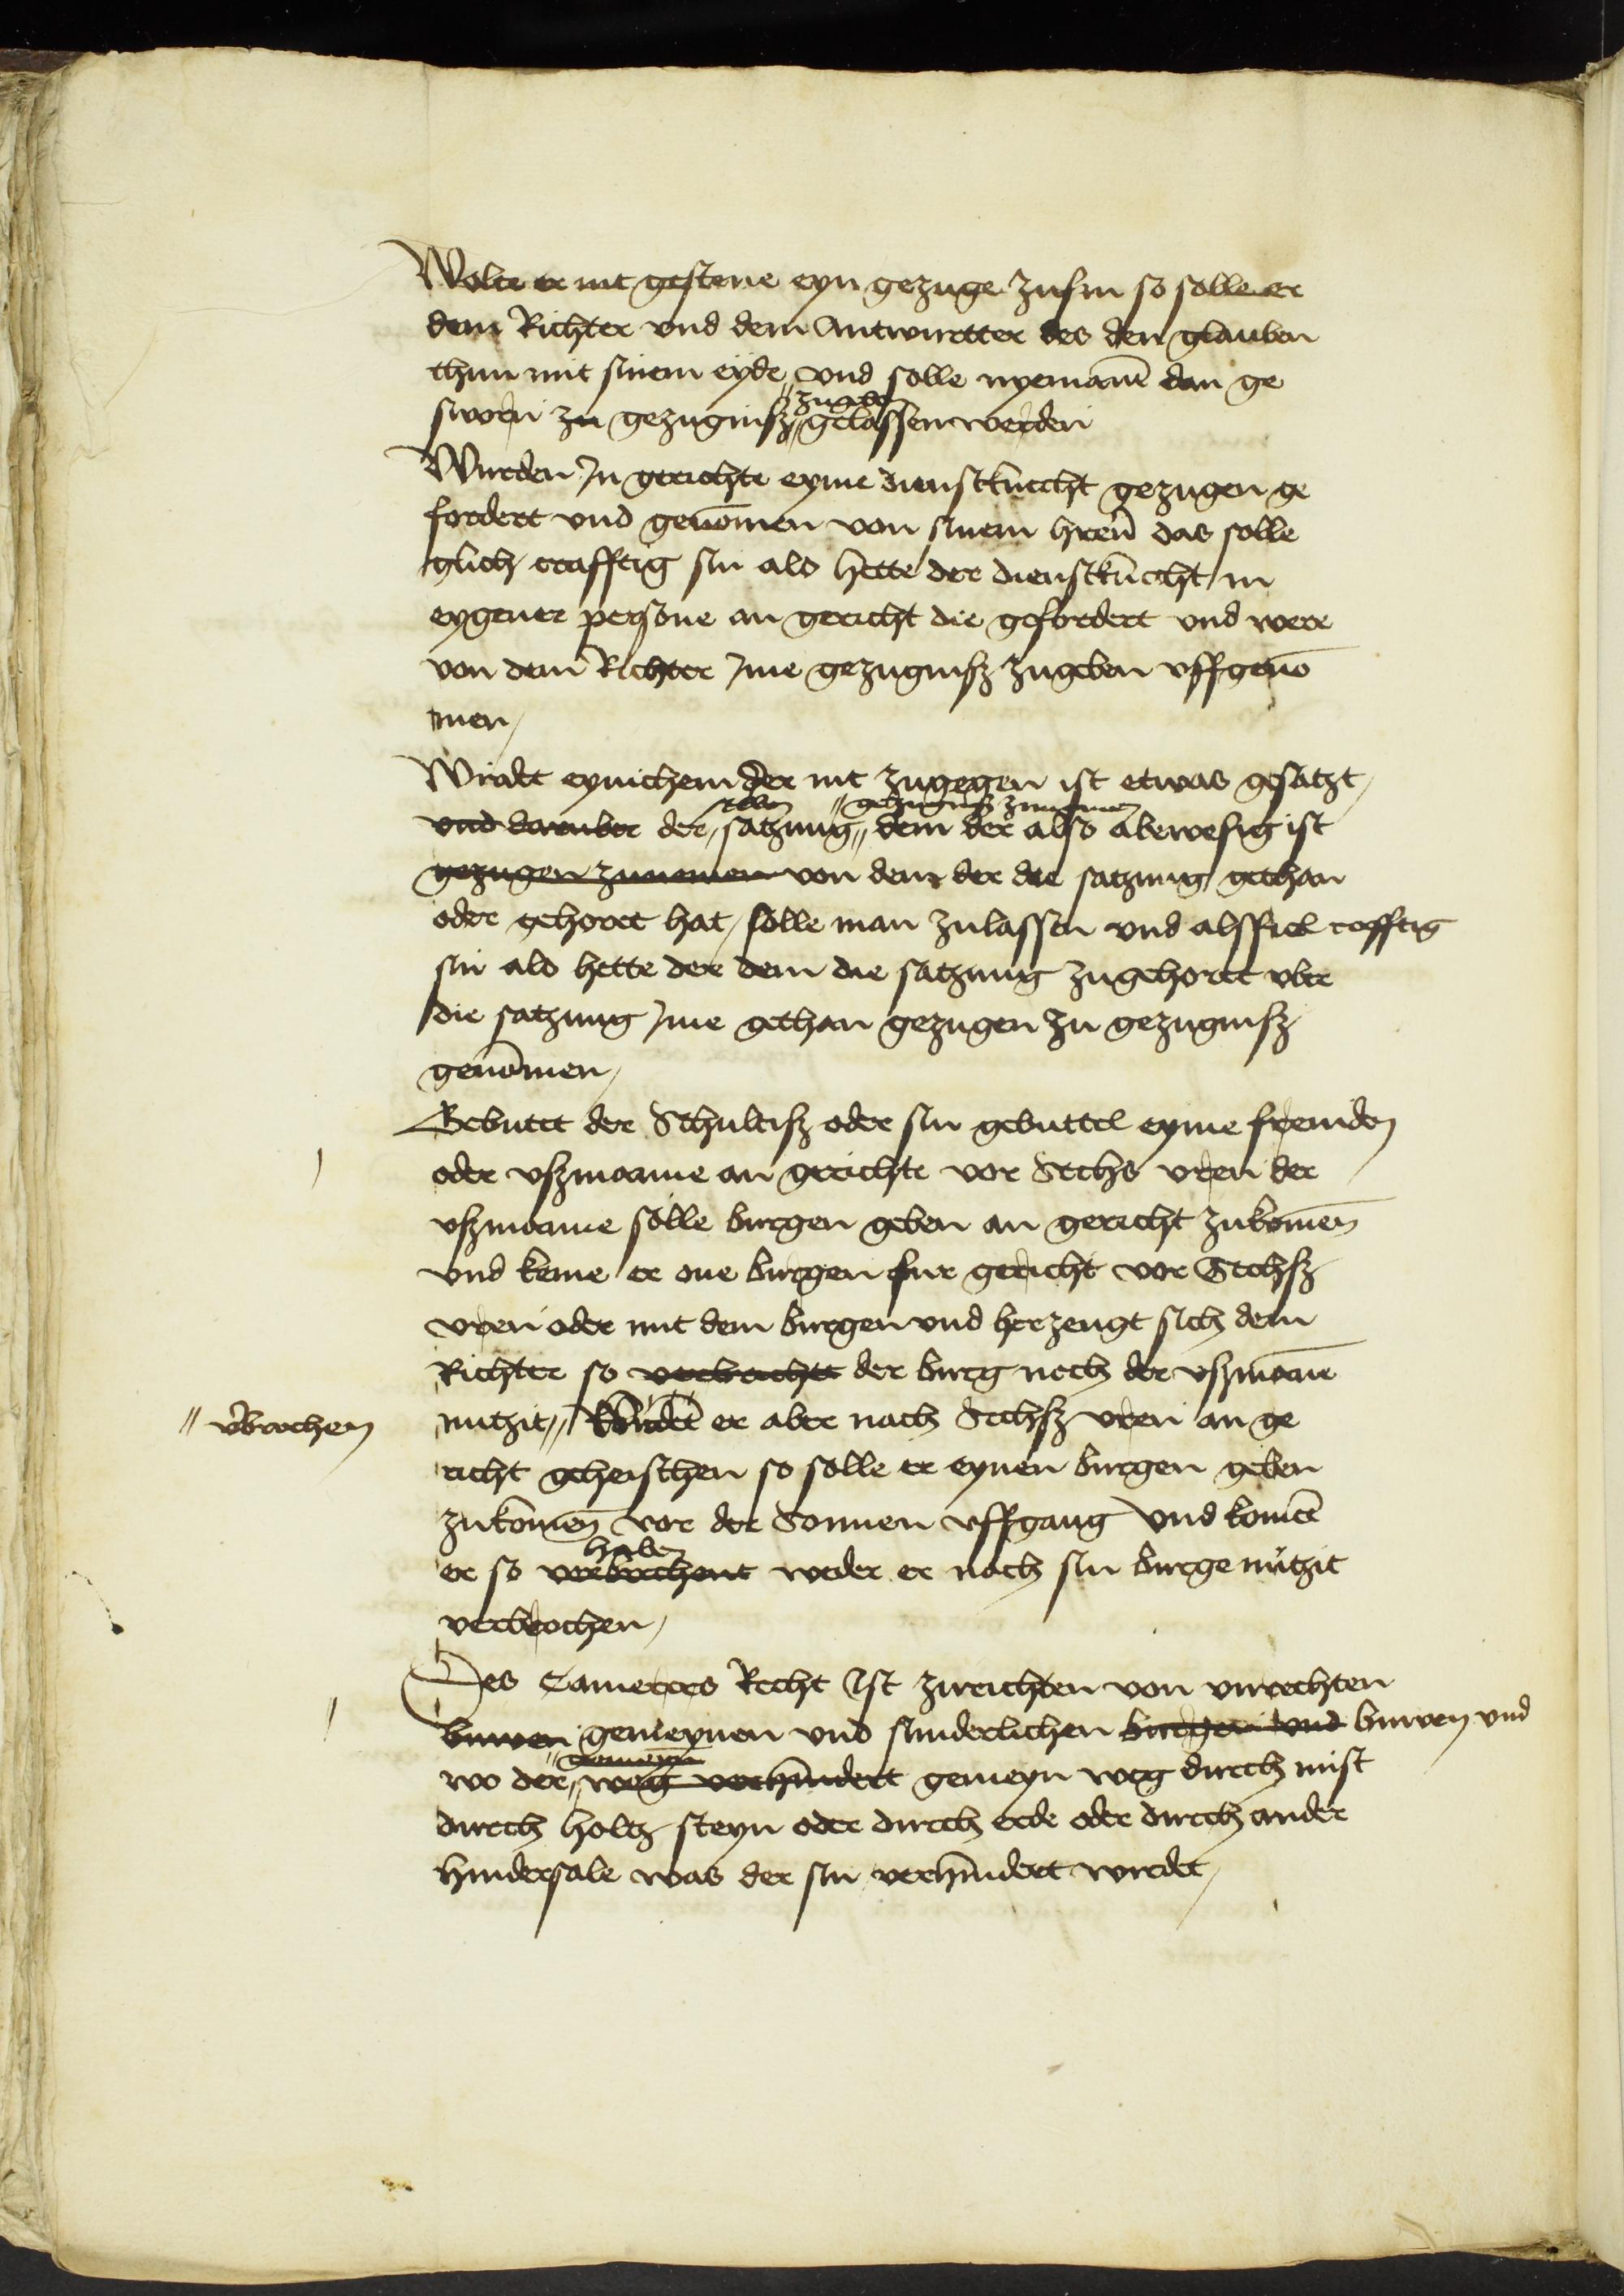 Wolte er nit gestene eyn gezuge zusin so solle er
dem Richter vnd dem Antwurtter des den glauben
thun mit sinem eyde vnd solle nyemane dan ge
zugeben
sworn zu gezugnisz gelassen werden
Wurden Jn gerichte eyme dienstknecht gezugen ge
fordert vnd genomen von sinem hren das solle
glich crafftig sin als hette der dienstknecht in
eygener persone an gericht die gefordert vnd were
von dem Richter Jme gezugnisz zugeben vffgeno
men
Wirdet eynichem der nit zugegen ist etwas gesatzt
gezugnisz zunemen
vnd daruber der satzung dem der also abewesig ist
gezugen zunemen von dem der die satzung gethan
oder gehoret hat solle man zulassen vnd alssfiel crefftig
sin als hette der dem die satzung zugehoret vber
die satzung Jme gethan gezugen zu gezugnisz
genommen
Gebutet der Schultisz oder sin gebuttel eyme fremden
oder vszmanne an gerichte vor Sechs vren der
vszmanne solle burgen geben an gericht zukomen
vnd keme er one burgen fur gericht vor Sechsz
vren oder mit dem burgen vnd herzeugt sich dem
Richter so verbrechet der burg noch der vszmane
v'brochen
nutzit er aber nach Sechsz vren an ge
richt geheischen so solle er eynen burgen geben
zukomen vor der Sonnen vffgang vnd komet
haben
er so verbrechent weder er noch sin burge nutzit
verbrochen
Des Camerers Recht Ist zurichten von vnrechten
buwen gemeynen vnd sunderlichen burgen vnd buwen vnd
gemeyn
wo der weg verhindert gemeyn weg durch mist
durch holtz steyn oder durch erde oder durch ander
hindersale was der sin verhindert wurdet